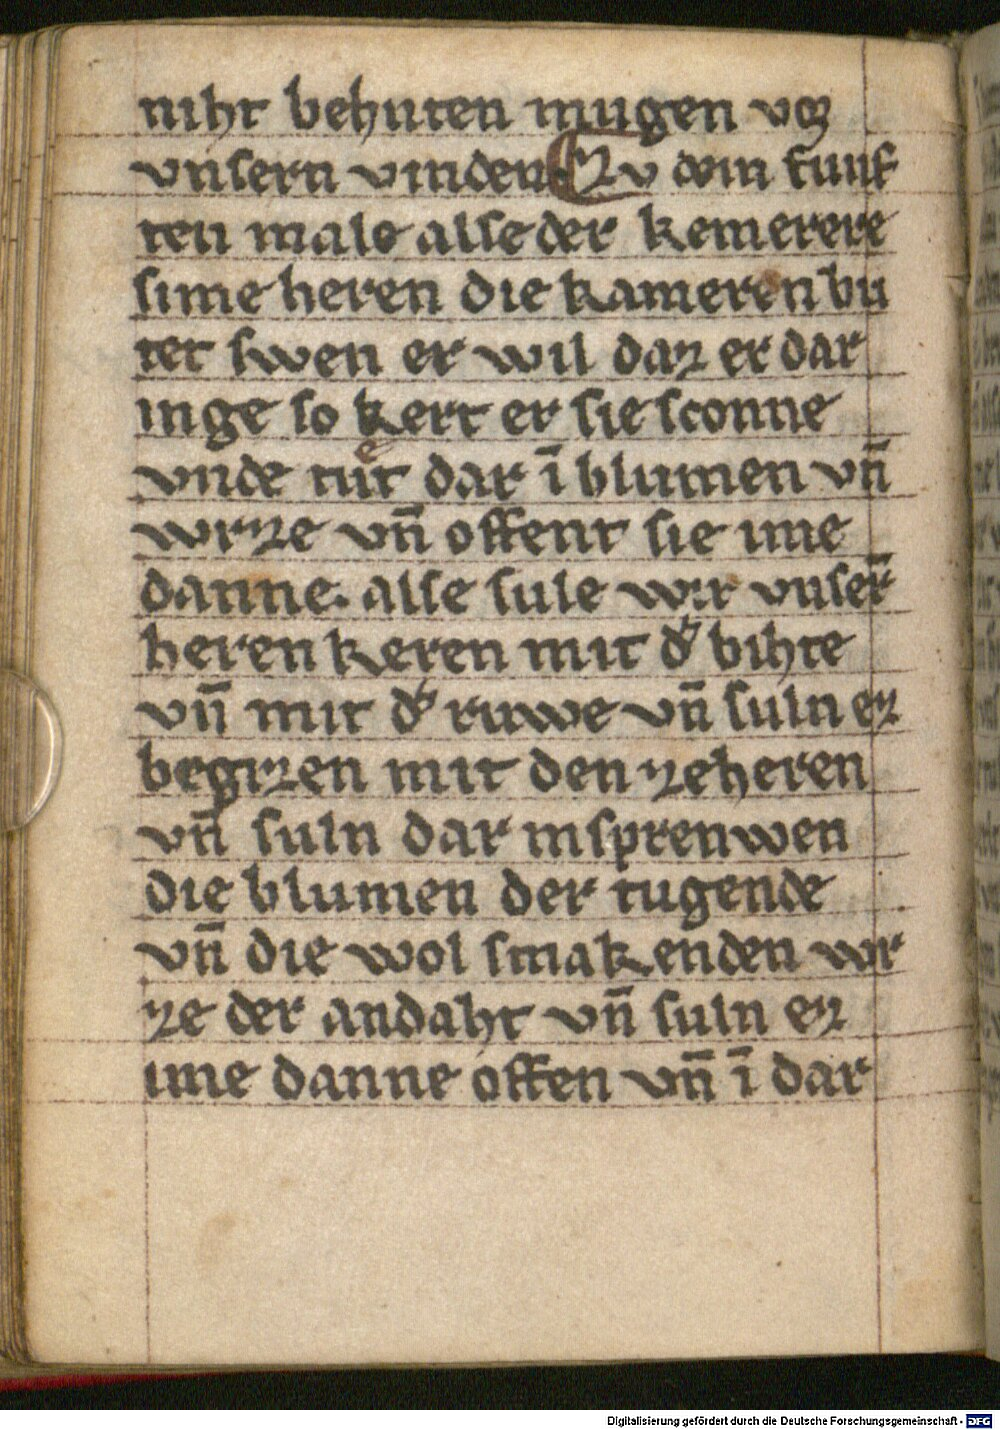 niht behuten mugen vor
vnsern vinden Zv dem funf
ten male alse der kemerere
sime heren die kameren bu
tet swen er wil daz er dar
inge so kert er sie sconne
vnde tuͤt dar ī blumen vn̄
wrze vn̄ offent sie ime
danne. alse sule wir vnser̄
heren keren mit d' bihte
vn̄ mit d' ruwe vn̄ suln ez
begizen mit den zeheren
vn̄ suln dar insprenwen
die blumen der tugende
vn̄ die wol smakenden wr
ze der andaht vn̄ suln ez
ime danne offen vn̄ ī dar
Digitalisierung gefördert durch die Deutsche Forschungsgemeinschaft - DFG